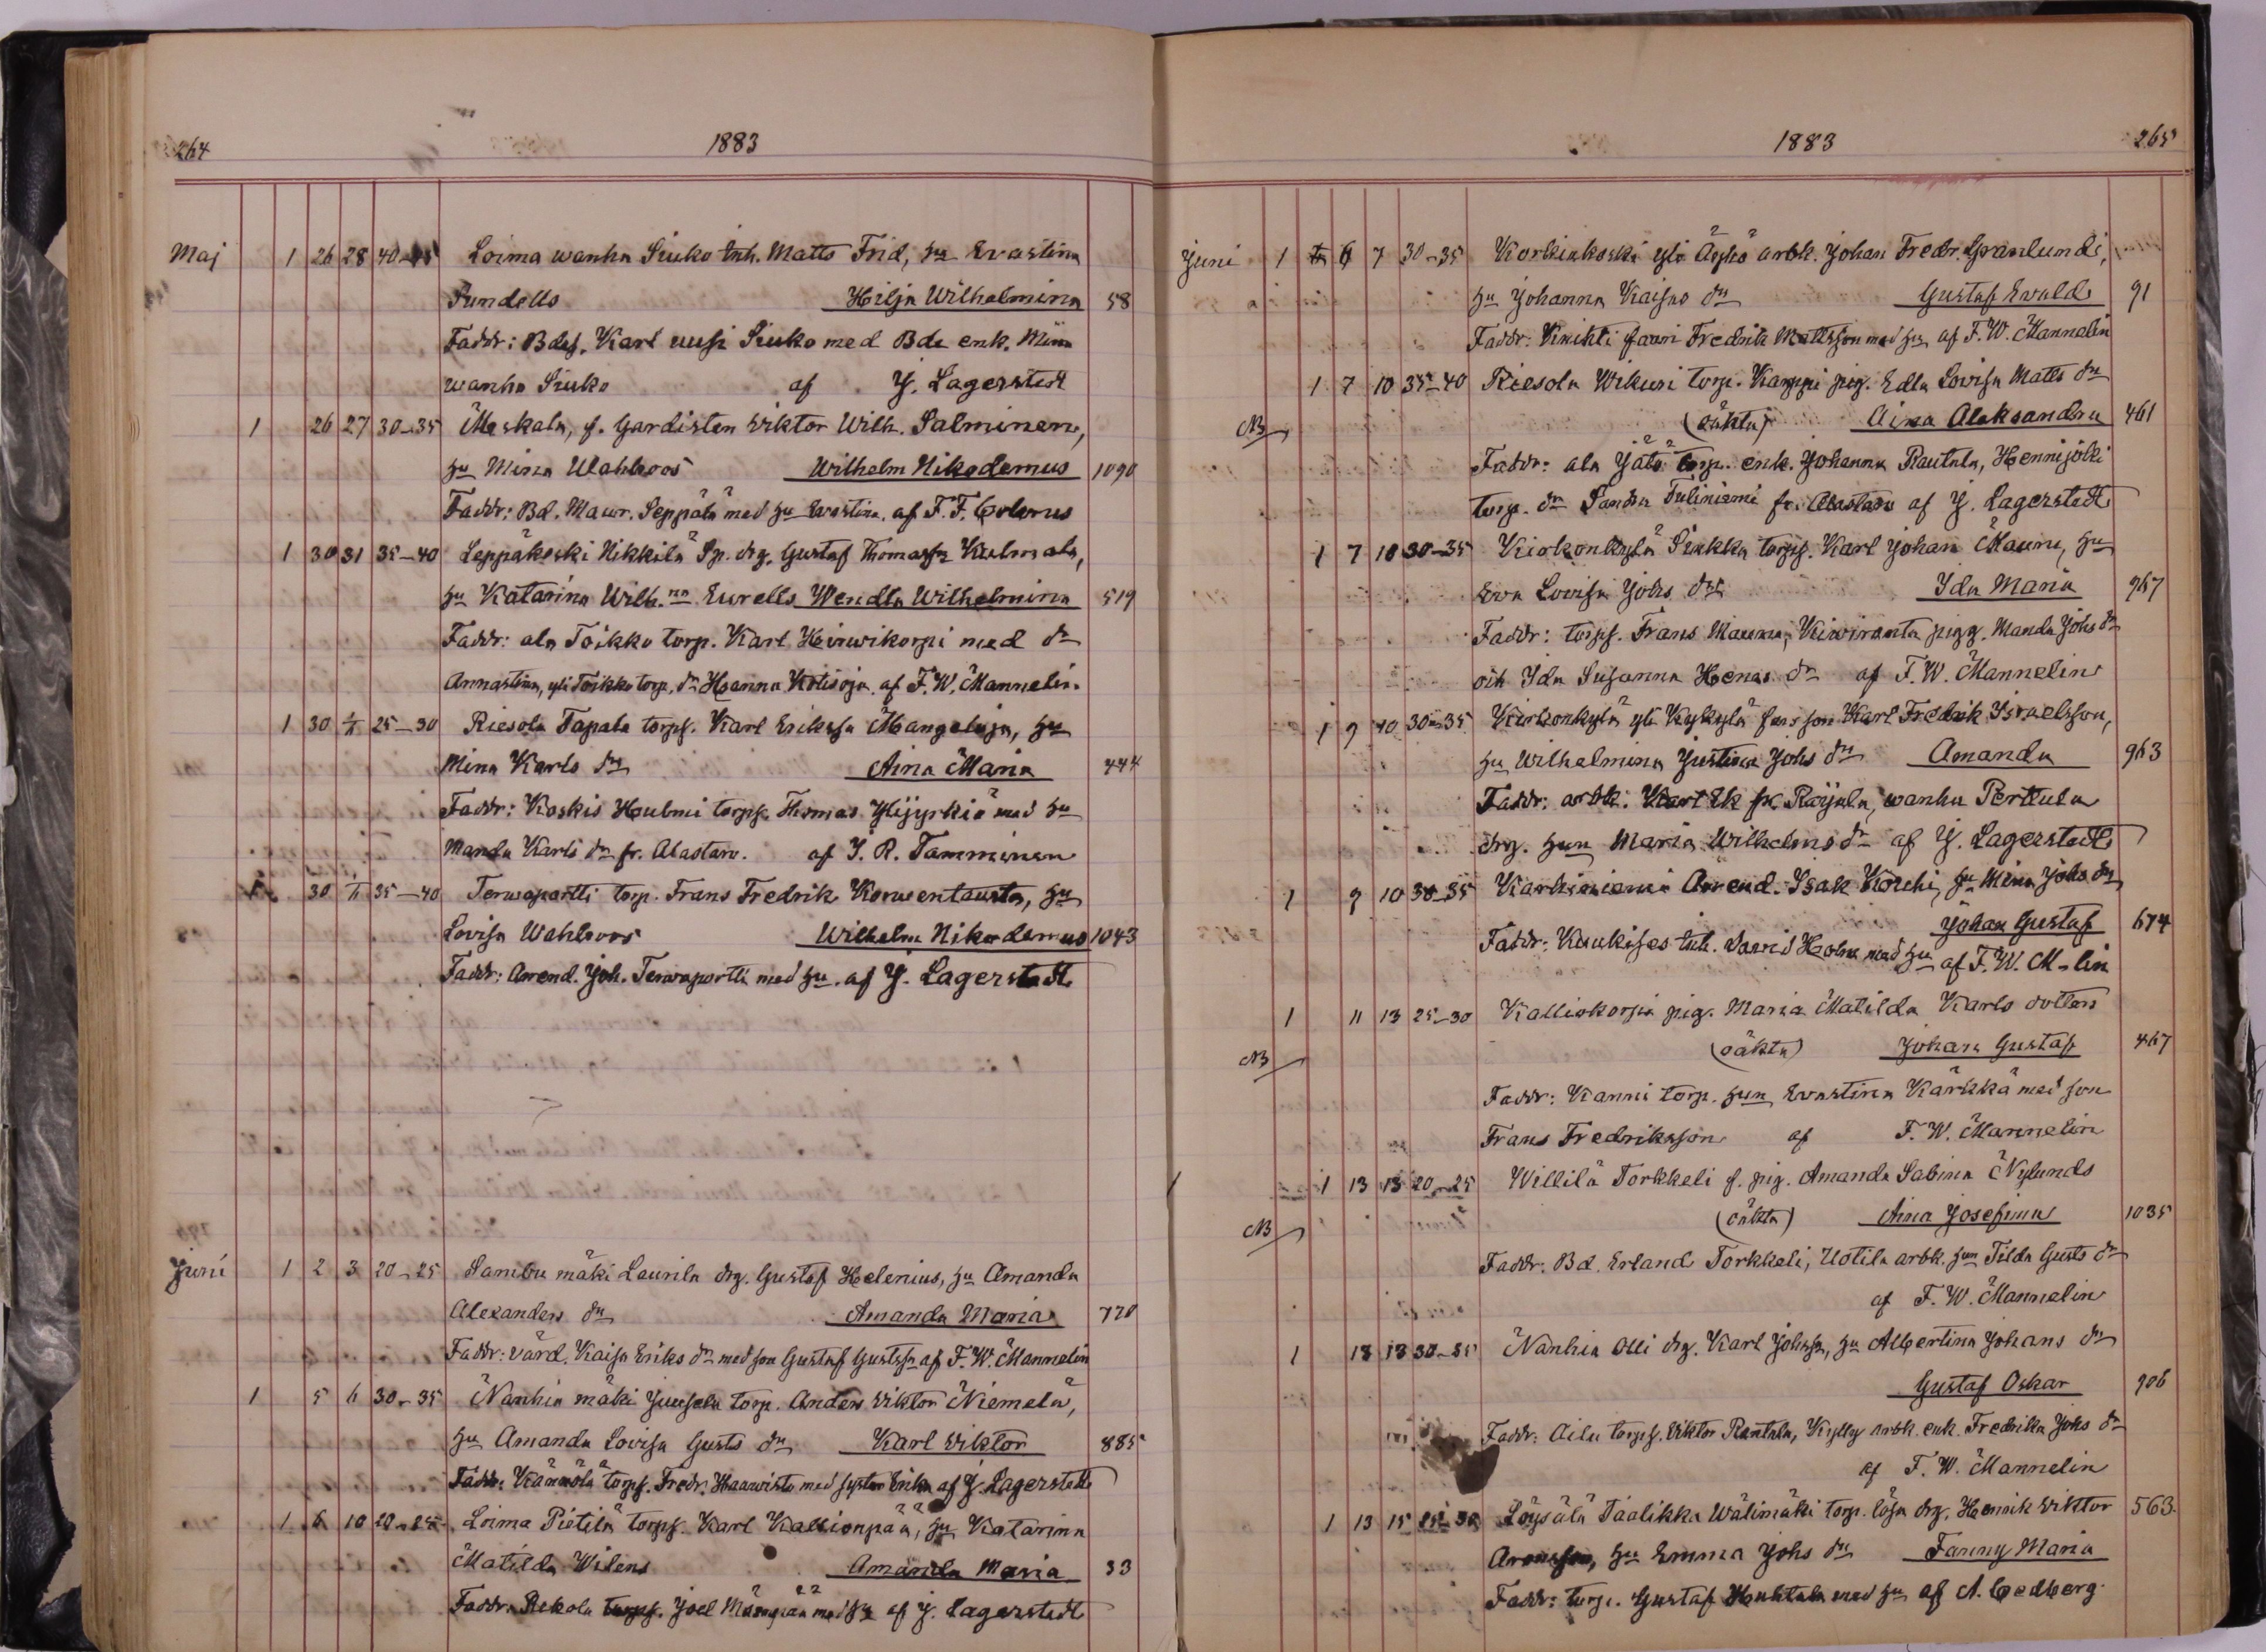 264
1883
Maj 1 26 28 40-45 Loima wanha Siuko Inh. Matts Frid, hu Evastina
Sundells Hilja Wilhelmina 58
Faddr: Bdes. Karl uusi Siuko med Bde enk. Mina
wanha Siuko af J. Lagerstedt
1 26 27 30-35 Meskala, f. Gardisten Viktor Wilh. Salminen,
hu Mina Wahlroos Wilhelm Nikodemus 1090
Faddr: Bd. Maur. Seppälä med hu Evastina af F. F. Colerus
1 30 31 35-40 Leppäkoski Nikkilä Sp. drg. Gustaf Thomass Kulmala,
hu Katarina Wilh.na Eurells Wendla Wilhelmina 519
Faddr: ala Toikko torp. Karl Hirwikorpi med dr
Annastina, yli Toikko torp. dr Hanna Kotioja af F. W. Mannelin
1 30 1/6 25-30 Riesola Tapala torps. Karl Erikssn Mangeloja, hu
Mina Karls dr Aina Maria 444
Faddr: Koskis Huhmi torps. Thomas Ylijyrkiö med hu
Manda Karls dr fr. Alastaro. af J. R. Tamminen
1 30 1/6 35-40 Terwaportti torp. Frans Fredrik Korwentausta, hu
Lovisa Wahlroos Wilhelm Nikodemus 1043
Faddr: Arend. Joh. Terwaportti med hu af J. Lagerstedt
Juni 1 2 3 20-25 Sambu mäki Laurila drg. Gustaf Helenius, hu Amanda
Alexanders dr Amanda Maria 770
Faddr: värd. Kaisa Eriks dr med son Gustaf Gustfsn af F. W. Mannelin
1 5 6 30-35 Nanhia mäki Juusela torp. Anders Viktor Niemelä,
hu Amanda Lovisa Gusts dr Karl Viktor 885
Faddr: Kännölä torps. Fredr. Haawisto med syster Erika af J. Lagerstedt
1 6 10 20-25 Loima Pietilä torps. Karl Kallionpää, hu Katarina
Matilda Wilens Amanda Maria 33
Faddr. Rekola torps. Joel Mäenpää med hu af J. Lagerstedt
1883
265
Juni 1 6 7 30-35 Korkiakoski yli Äykö arbk. Johan Fredr. Granlundi,
hu Johanna Kaisas dr Gustaf Evald 91
Faddr: Knihti Lauri Fredrik Mattsson med hu af F. W. Mannelin
1 7 10 35-40 Riesola Wikuri torp. Karppi pig. Edla Lovisa Matts dr
NB (oäkta) Aina Aleksandra 461
Faddr: ala Jätö torp. enk. Johanna Rautala, Hennijoki
torp. dr Sandra Tuliniemi fr. Alastaro af J. Lagerstedt
1 7 10 30-35 Kirkonkylä Siukka torps. Karl Johan Mauru, hu
Eva Lovisa Johs dr Ida Maria 967
Faddr: torps. Frans Mauru, Kiwiranta pigg. Manda Johs dr
och Ida Susanna Henas dr af F. W. Mannelin
1 9 10 30-35 Kirkonkylä yli Kykylä husson Karl Fredrik Israelsson,
hu Wilhelmina Justina Johs dr Amanda 963
Faddr: arbk. Karl Ek fr. Raijala, wanha Perttula
drg. hun Maria Wilhelms dr af J. Lagerstedt
1 9 10 30-35 Karhiniemi Arend. Isak Kouhi, hu Mina Johs dr
Johan Gustaf 674
Faddr: Kuukises Inh. David Holma med hu af F. W. M-lin
1 11 13 25-30 Kalliokorpi pig. Maria Matilda Karls dotters
NB (oäkta) Johan Gustaf 467
Faddr: Kanni torp. hun Evastina Kärkkä med son
Frans Fredriksson af F. W. Mannelin
1 13 13 20-25 Willilä Torkkeli f. pig. Amanda Sabina Nylunds
NB (oäkta) Aina Josefina 1035
Faddr. Bd. Erland Torkkeli, Uotila arbk. hun Tilda Gusts dr
af F. W. Mannelin
1 13 13 30-35 Nanhia Olli drg. Karl Johnssn, hu Albertina Johans dr
Gustaf Oskar 906
Faddr: Aila torps. Viktor Rantala, Kylly arbk. enk. Fredrika Johs dr
af F. W. Mannelin
1 13 15 25-30 Löysälä Taalikka Wälimäki torp. lösa drg. Henrik Viktor 563
Aronsson, hu Emma Johs dr Fanny Maria
Faddr: torp. Gustaf Huhtala med hu af A. Cedberg